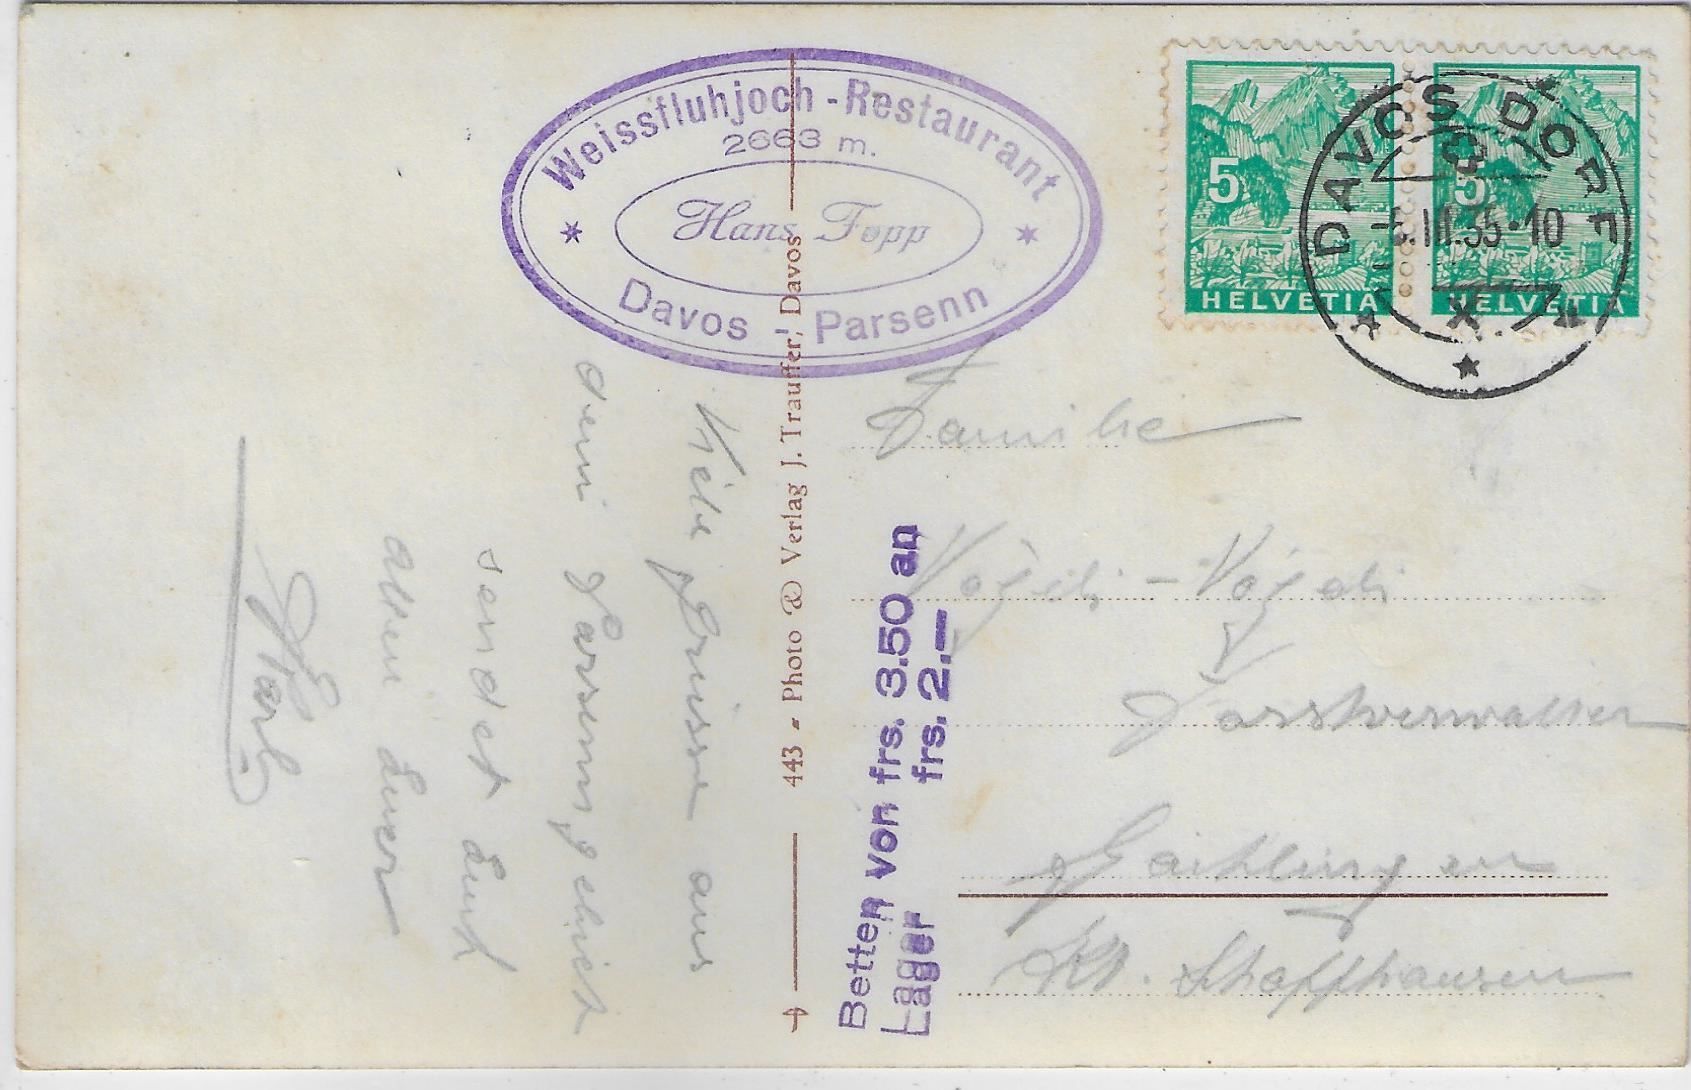 Weissfluhjoch-Restaurant
2663 m.
Hans Fopp
Davos - Parsenn
5
HELVETIA
5
HELVETIA
DAVOS DORF
.III.35.10
443 - Photo & Verlag J. Trauffer, Davos
Betten von frs. 3.50 an
Lager frs. 2.—
Familie
Vögeli-Vögeli
Forstverwalter
Gächlingen
Kt. Schaffhausen
Viele Grüsse aus
dem Parsenngebiet
sendet Euch
allen Euer
Karl